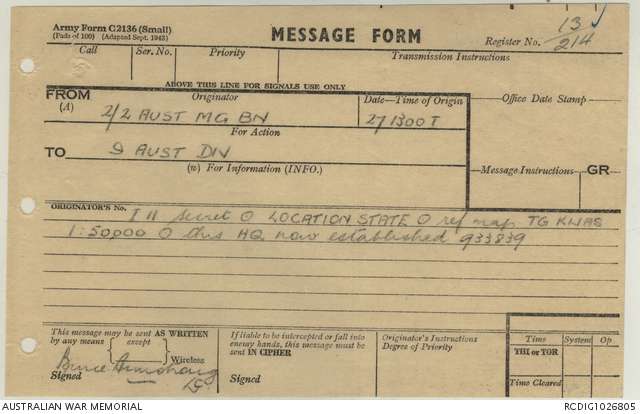 Army Form C2136 (Small)
(Pads of 100) (Adapted Sept. 1943)
MESSAGE FORM
Register No. 13/214
Call Ser. No. Priority Transmission Instructions
ABOVE THIS LINE FOR SIGNALS USE ONLY
FROM Originator Date—Time of Origin Office Date Stamp
(A) 2/2 AUST MG BN 271300 I
For Action
TO 9 AUST DIV
(w) For Information (INFO.) Message Instructions GR
ORIGINATOR'S No. I 11 secret O LOCATION STATE O ref map TG KLIAS
1:50,000 O this HQ now established 933839
This message may be sent AS WRITTEN
by any means except
Wireless
Signed Bruce Armstrong
If liable to be intercepted or fall into
enemy hands, this message must be
sent IN CIPHER
Signed
Originator's Instructions
Degree of Priority
Time System Op
THI or TOR
Time Cleared
AUSTRALIAN WAR MEMORIAL RCDIG1026805